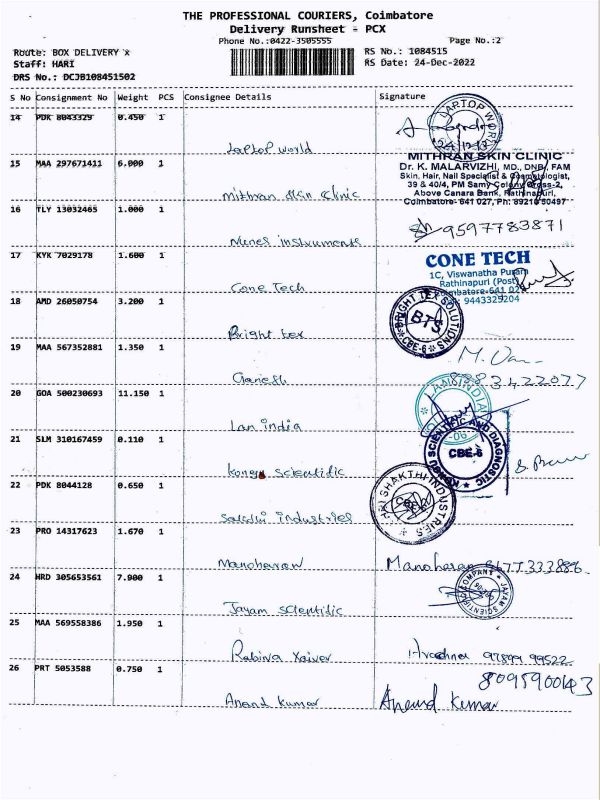 THE PROFESSIONAL COURIERS, Coimbatore
Delivery Runsheet - PCX
Phone No.:0422-3505555 Page No.:2
Route: BOX DELIVERY x RS No.: 1084515
Staff: HARI RS Date: 24-Dec-2022
DRS No.: DCJB108451502
S No Consignment No Weight PCS Consignee Details Signature
14 PDK 8043329 0.450 1
LAPTOP WORLD
Laptop world
15 MAA 297671411 6.000 1
MITHRAN SKIN CLINIC
Dr. K. MALARVIZHI, MD., DNB, FAM
Skin, Hair, Nail Specialist & Cosmetologist,
39 & 40/4, PM Samy Colony Cross-2,
Above Canara Bank, Rathinapuri,
Coimbatore- 641 027, Ph: 89210 50497
mithran skin clinic
16 TLY 13032465 1.000 1
9597783871
instruments
17 KYK 7029178 1.600 1
CONE TECH
1C, Viswanatha Puram
Rathinapuri (Post)
Coimbatore-641 027
9443329204
Cone Tech
18 AMD 26050754 3.200 1
BRIGHT TEX SOLUTIONS
BTS
CBE-6
Bright tex
19 MAA 567352881 1.350 1
Ganesh
20 GOA 500230693 11.150 1
LAN INDIA
Lan india
21 SLM 310167459 0.110 1
KONGU SCIENTIFIC AND DIAGNOSTIC
CBE-6
kongu scientific
22 PDK 8044128 0.650 1
SHAKTHI INDUSTRIES
industries
23 PRO 14317623 1.670 1
Manoharan Manoharan
24 HRD 305653561 7.900 1
COMPANY JAYAM SCIENTIFIC
Jayam scientific
25 MAA 569558386 1.950 1
Rabina Xaiver 97899 99522
26 PRT 5053588 0.750 1
8095900143
Anand kumar Anand Kumar